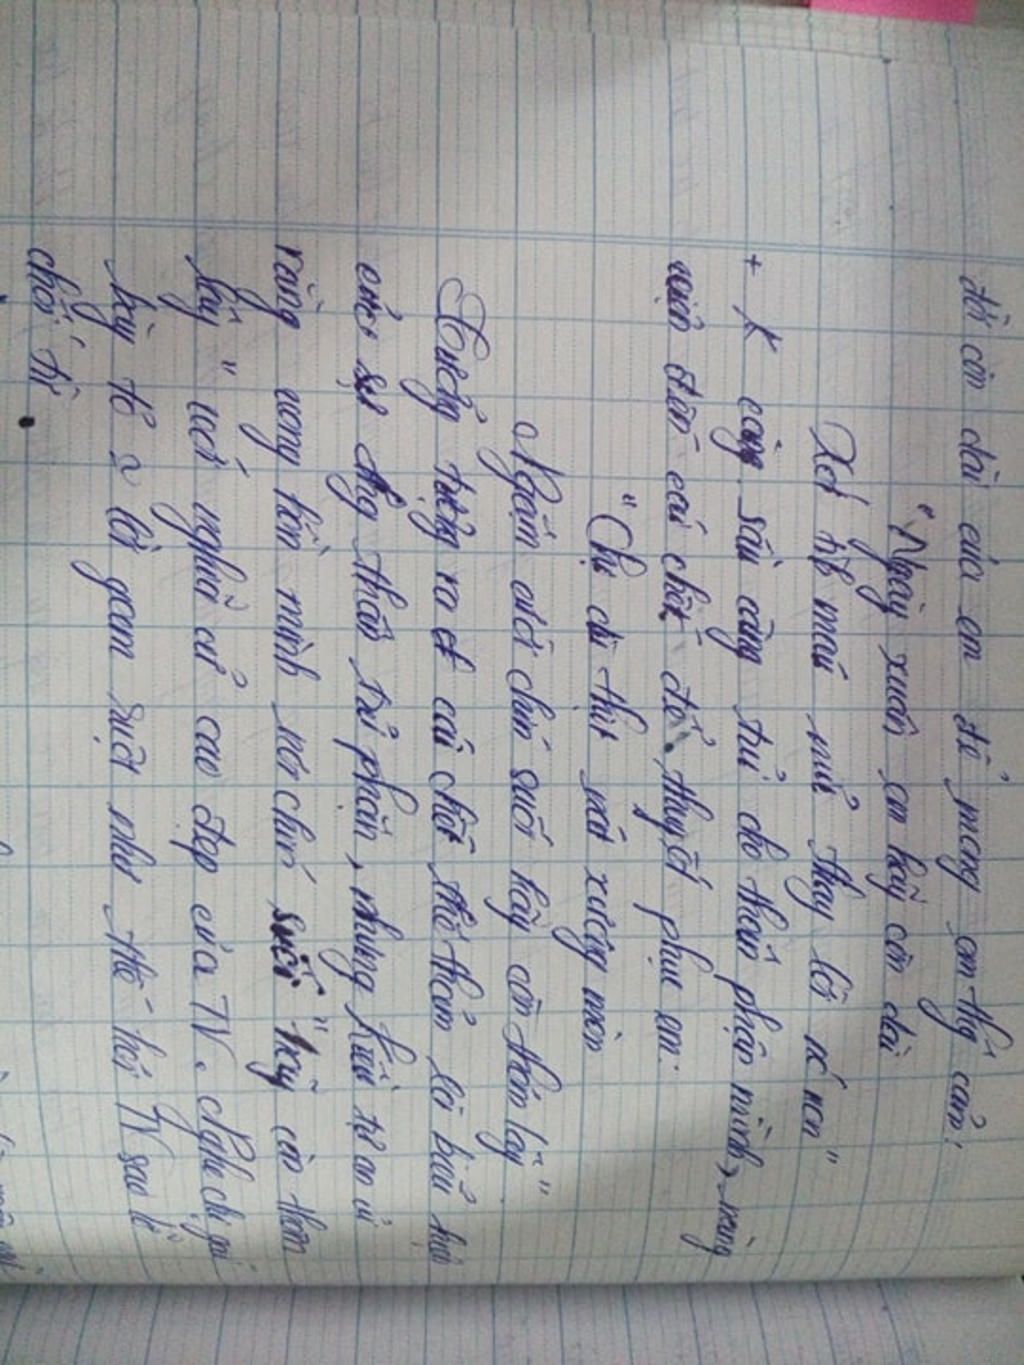 đời còn dài của em để mong em thg cảm:
"Ngày xuân em hãy còn dài
Xót tình máu mủ thay lời nc non"
+ K càng sâu càng tủi cho thân phận mình, nàng
viện đến cái chết để thuyết phục em:
"Chị dù thịt nát xương mòn
Ngậm cười chín suối hãy còn thơm lây"
Tưởng tượng ra cái chết thê thảm là biểu hiện
của sự thg thân tủi phận, nhưng Kiều tự an ủi
rằng vong hồn mình nơi chín suối "hãy còn thơm
lây" với nghĩa cử cao đẹp của TV. Nghe chị gái
bày tỏ lời gan ruột như thế hỏi TV sao lỡ
chối từ